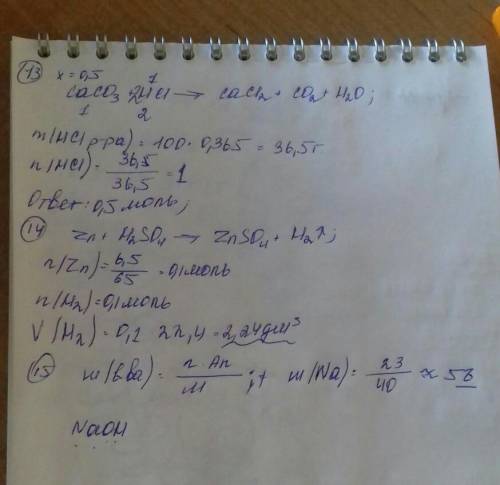 13 x = 0,5 1
CaCO3 + 2HCl → CaCl2 + CO2 + H2O;
1 2
m(HCl р-ра) = 100 · 0,365 = 36,5г
n(HCl) = 36,5/36,5 = 1
Ответ: 0,5 моль;
14 Zn + H2SO4 → ZnSO4 + H2↑;
n(Zn) = 6,5/65 = 0,1 моль
n(H2) = 0,1 моль
V(H2) = 0,1 22,4 = 2,24 дм³
15 (в-ва) = n · Ar/M ; m(Na) = 23/40 ≈
NaOH